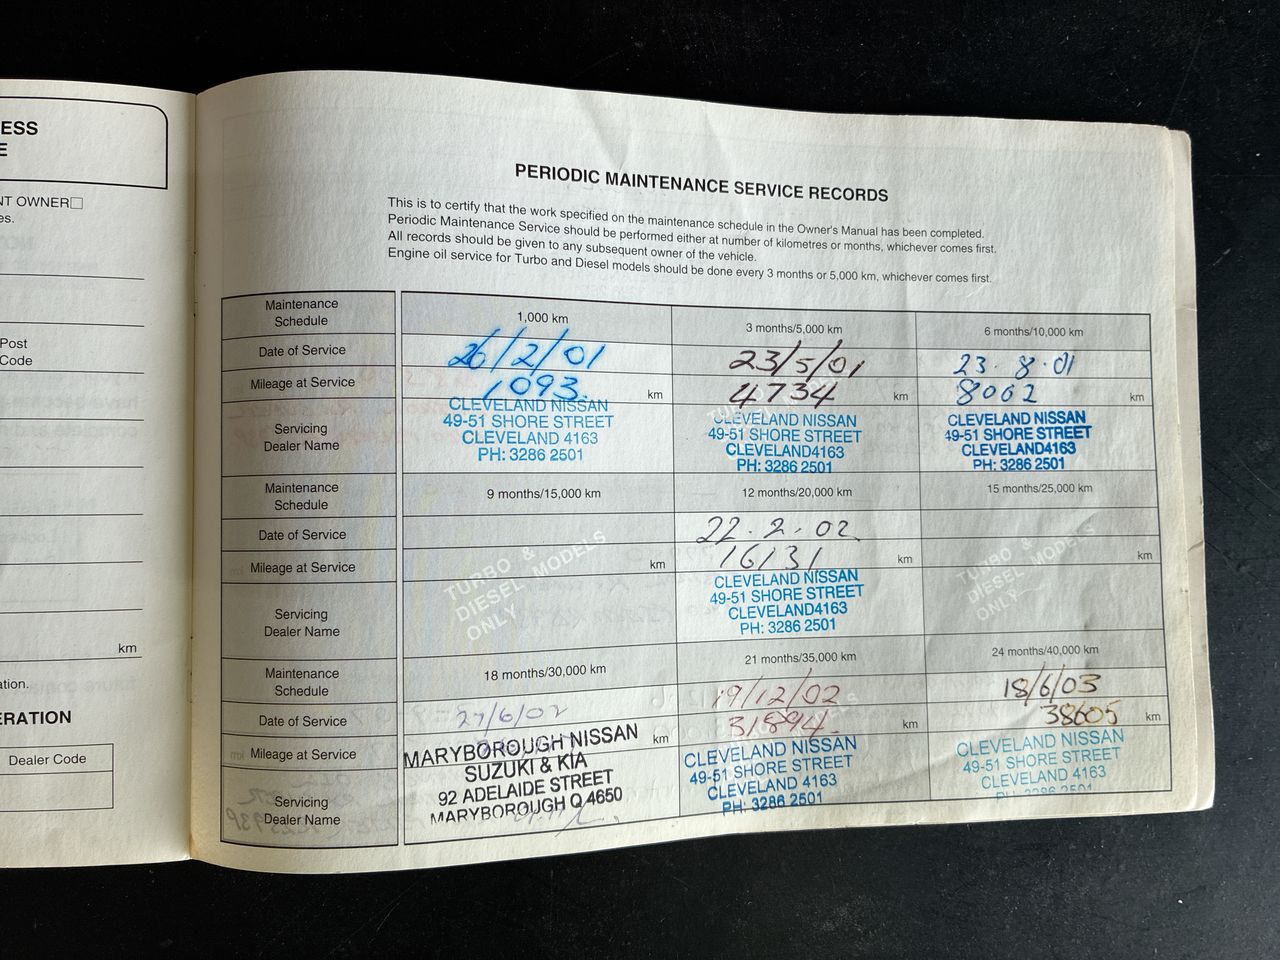 ESS
E
NT OWNER☐
es.
Post
Code
km
ation.
ERATION
Dealer Code
PERIODIC MAINTENANCE SERVICE RECORDS
This is to certify that the work specified on the maintenance schedule in the Owner's Manual has been completed.
Periodic Maintenance Service should be performed either at number of kilometres or months, whichever comes first.
All records should be given to any subsequent owner of the vehicle.
Engine oil service for Turbo and Diesel models should be done every 3 months or 5,000 km, whichever comes first.
Maintenance Schedule 1,000 km 3 months/5,000 km 6 months/10,000 km
Date of Service 26/2/01 23/5/01 23.8.01
Mileage at Service 1093 km 4734 km 8062 km
Servicing
Dealer Name
CLEVELAND NISSAN
49-51 SHORE STREET
CLEVELAND 4163
PH: 3286 2501
CLEVELAND NISSAN
49-51 SHORE STREET
CLEVELAND4163
PH: 3286 2501
CLEVELAND NISSAN
49-51 SHORE STREET
CLEVELAND4163
PH: 3286 2501
Maintenance Schedule 9 months/15,000 km 12 months/20,000 km 15 months/25,000 km
Date of Service 22.2.02
Mileage at Service km 16131 km km
Servicing
Dealer Name
TURBO &
DIESEL MODELS
ONLY
CLEVELAND NISSAN
49-51 SHORE STREET
CLEVELAND4163
PH: 3286 2501
TURBO &
DIESEL MODELS
ONLY
Maintenance Schedule 18 months/30,000 km 21 months/35,000 km 24 months/40,000 km
Date of Service 27/6/02 19/12/02 18/6/03
Mileage at Service km 31894 km 38605 km
Servicing
Dealer Name
MARYBOROUGH NISSAN
SUZUKI & KIA
92 ADELAIDE STREET
MARYBOROUGH Q 4650
CLEVELAND NISSAN
49-51 SHORE STREET
CLEVELAND 4163
PH: 3286 2501
CLEVELAND NISSAN
49-51 SHORE STREET
CLEVELAND 4163
PH: 3286 2501